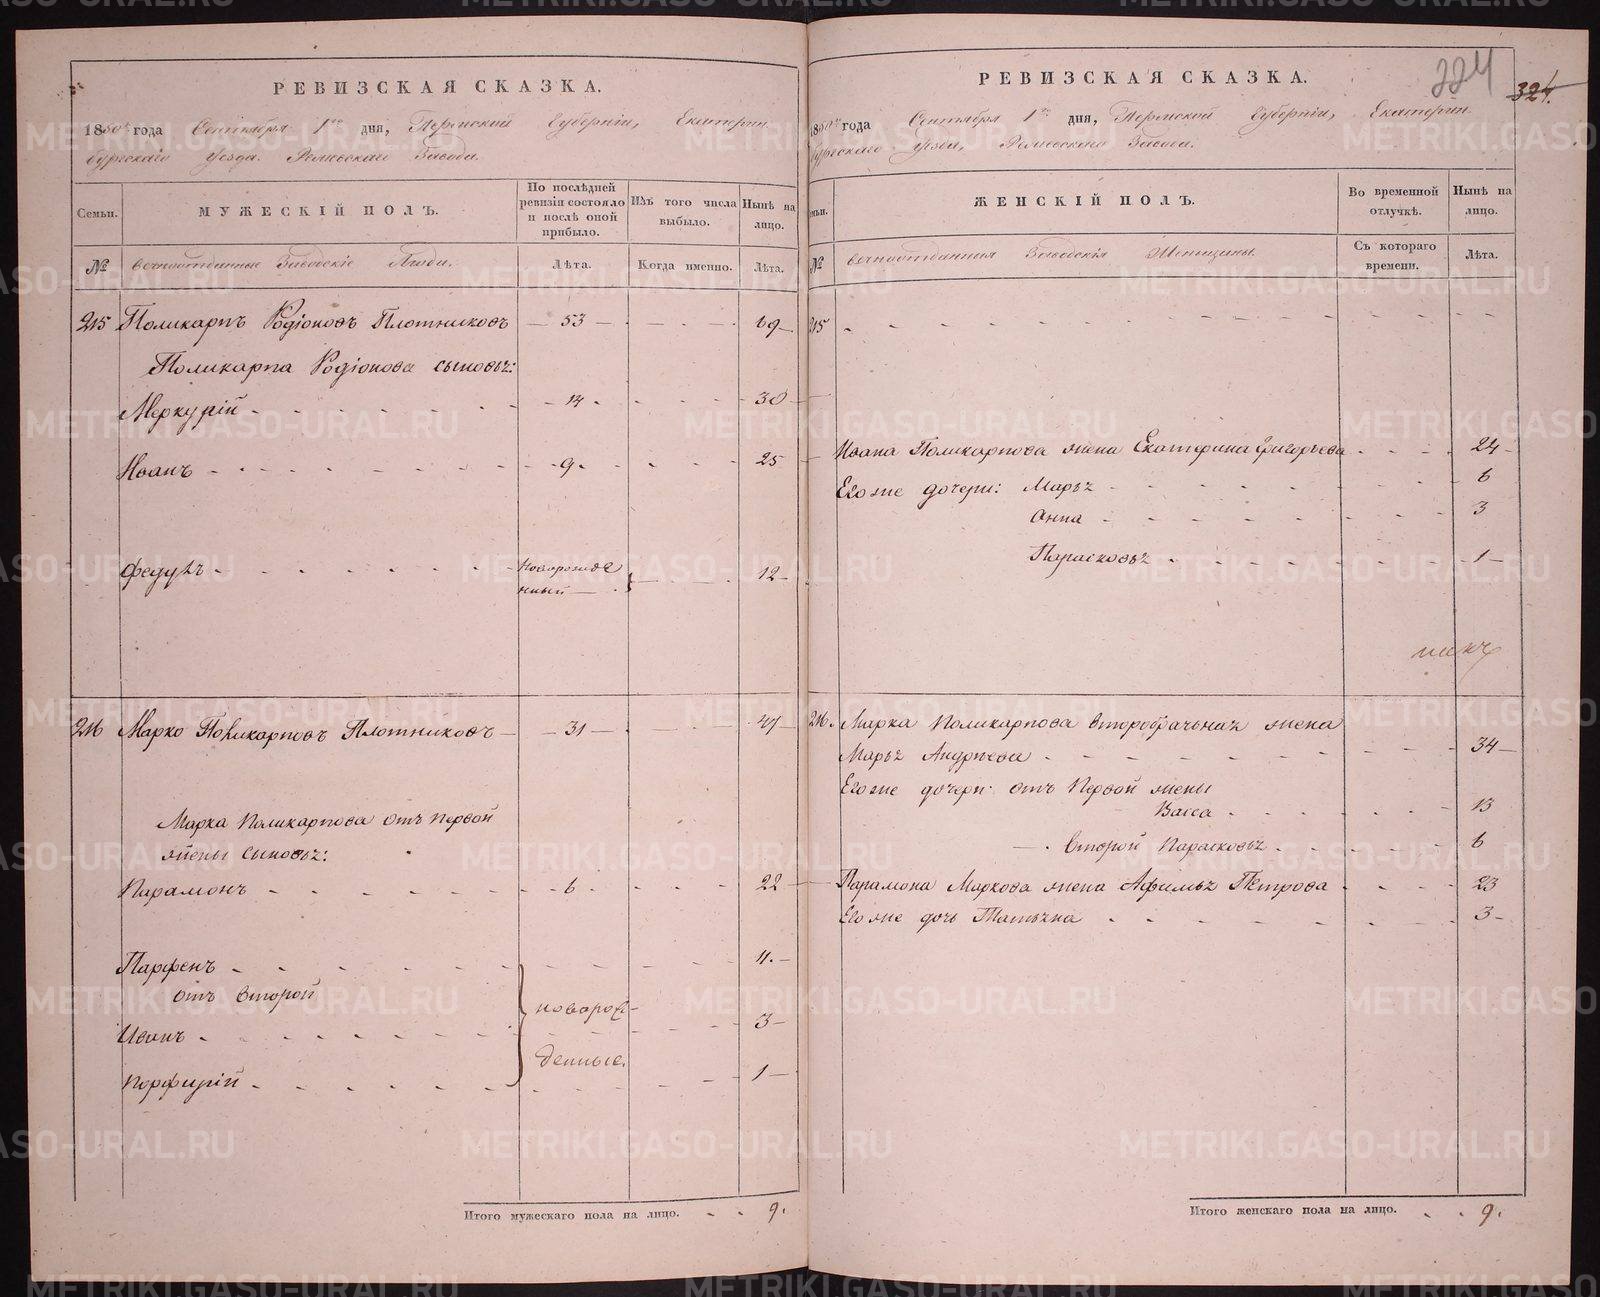 РЕВИЗСКАЯ СКАЗКА.
1850 года Сентября 1го дня, Пермской Губернiи, Екатерин
бургскаго Уезда. Завода.
Семьи.
МУЖЕСКIЙ ПОЛЪ.
По послѣдней ревизiи состояло и послѣ оной прибыло.
Изъ того числа выбыло.
Нынѣ на лицо.
№
Вечноотданные Заводскiе Люди.
Лѣта.
Когда именно.
Лѣта.
215 Поликарпъ Родiоновъ Плотниковъ 53 69
Поликарпа Родiонова сыновья:
Меркурiй 14 30
Иванъ 9 25
Федулъ Новорожде 12
нный
216 Марко Поликарповъ Плотниковъ 31 47
Марка Поликарпова отъ первой
жены сыновья:
Парамонъ 6 22
Парфенъ 11
отъ второй
новорож-
Иванъ 3
денные.
Порфирiй 1
Итого мужескаго пола на лицо. 9.
224
324.
РЕВИЗСКАЯ СКАЗКА.
1850го года Сентября 1го дня, Пермской Губернiи, Екатерин
бургскаго Уезда, Завода.
Семьи.
ЖЕНСКIЙ ПОЛЪ.
Во временной отлучкѣ.
Нынѣ на лицо.
№
Вечноотданныя Заводскiя Женщины.
Съ котораго времени.
Лѣта.
215
Ивана Поликарпова жена Екатерина Григорьева 24
Его же дочери: Марья 6
Анна 3
Парасковья 1
216. Марка Поликарпова второбрачная жена
Марья Андреева 34
Его же дочери отъ первой жены
Васса 13
второй Парасковья 6
Парамона Маркова жена Афимья Петрова 23
Его же дочь Татьяна 3
Итого женскаго пола на лицо. 9.
METRIKI.GASO-URAL.RU